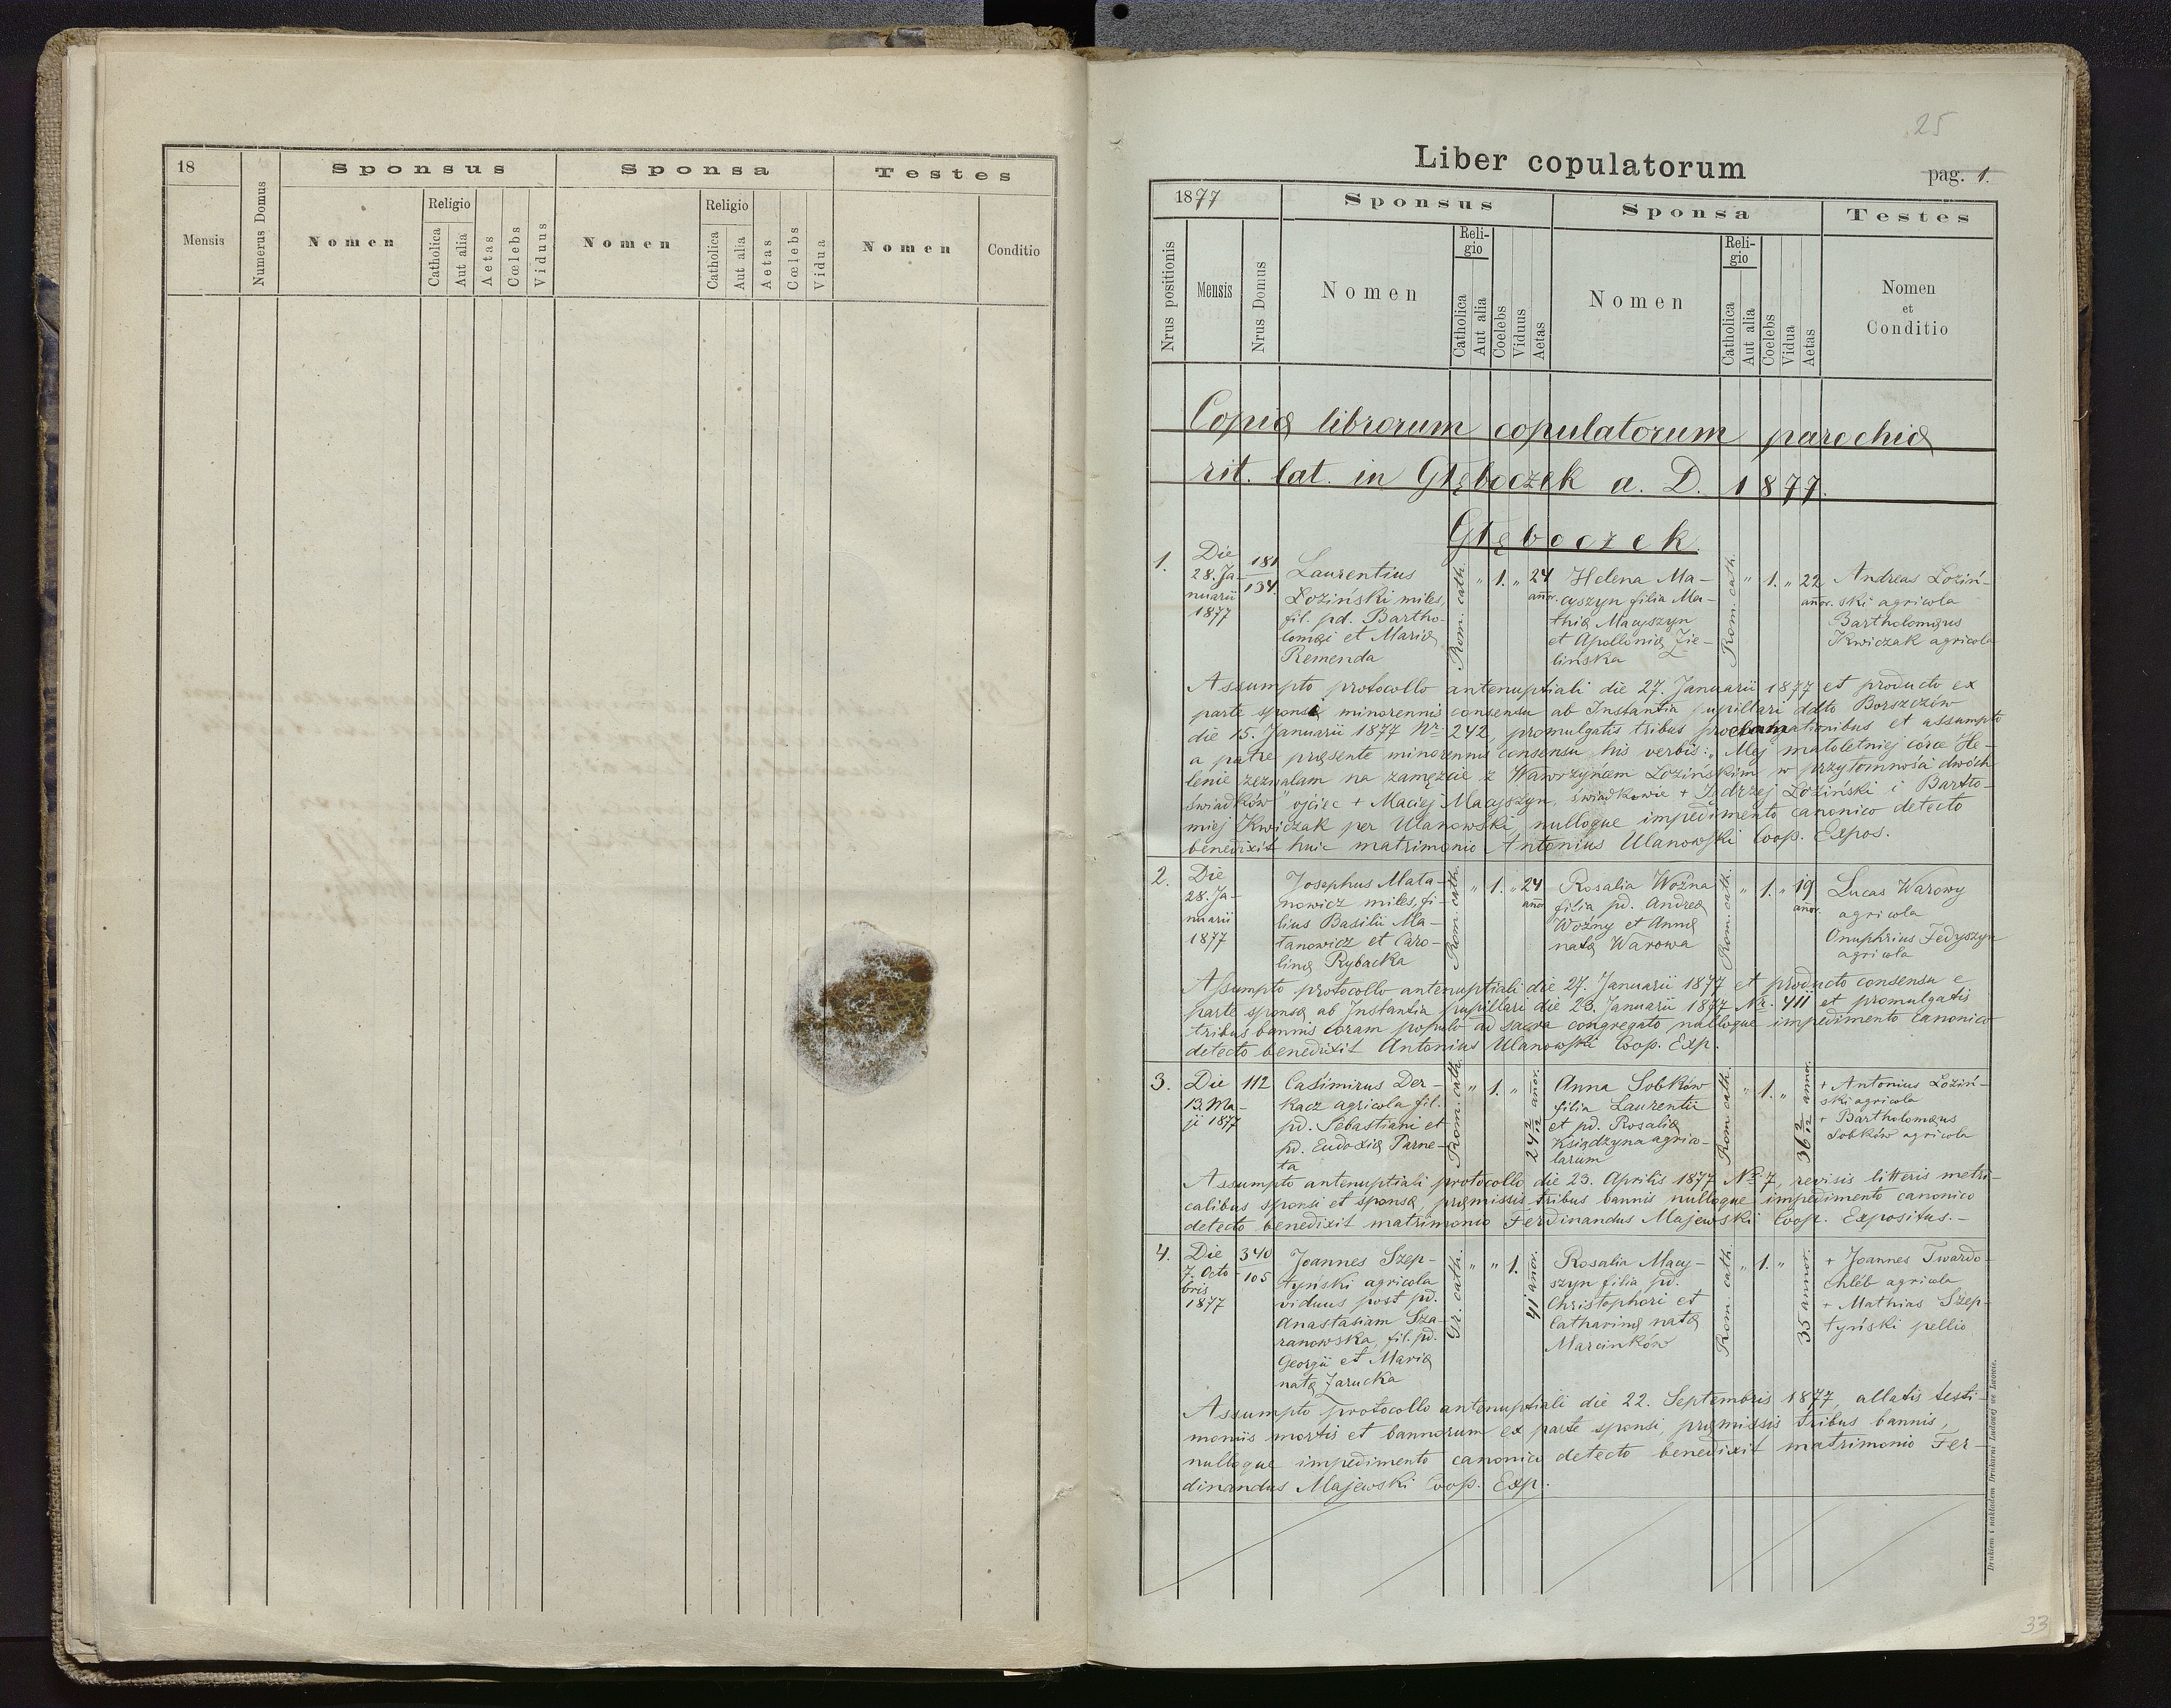 18
Mensis
Numerus Domus
Sponsus
Nomen
Religio
Catholica
Aut alia
Aetas
Cœlebs
Viduus
Sponsa
Nomen
Religio
Catholica
Aut alia
Aetas
Cœlebs
Vidua
Testes
Nomen
Conditio
25
Liber copulatorum
pag. 1.
1877
Nrus positionis
Mensis
Nrus Domus
Sponsus
Nomen
Reli-
gio
Catholica
Aut alia
Coelebs
Viduus
Aetas
Sponsa
Nomen
Reli-
gio
Catholica
Aut alia
Coelebs
Vidua
Aetas
Testes
Nomen
et
Conditio
Copia librorum copulatorum parochię
rit. lat. in Głęboczek a. D. 1877.
Głęboczek
1.
Die
28. Ja-
nuarii
1877
181
134.
Laurentius
Łoziński miles,
fil. pd. Bartho-
lomęi et Marię
Remenda
Rom. cath.
" 1. " 24
añor.
Helena Ma-
cyszyn filia Ma-
thię Macyszyn
et Apollonię Zie-
lińska
Rom. cath.
" 1. " 22
añor.
Andreas Łoziń-
ski agricola
Bartholomęus
Kwiczak agricola
Assumpto protocollo antenuptiali die 27. Januarii 1877 et producto ex
parte sponsi minorennis consensu ab Instantia pupillari ddto Borszczów
die 15. Januarii 1877 Nr 242, promulgatis tribus proclamationibus et assumpto
a patre pręsente minorennis consensu his verbis: „Mej małoletniej córce He-
lenie zezwalam na zamęzcie z Wawrzyńcem Łozińskim w przytomności dwóch
świadków" ojciec + Maciej Macyszyn, świadkowie + Jędrzej Łoziński i Bartło-
miej Kwiczak per Ulanowski, nulloque impedimento canonico detecto
benedixit huic matrimonio Antonius Ulanowski Coop. Expos.
2.
Die
28. Ja-
nuarii
1877
Josephus Mata-
nowicz miles, fi-
lius Basilii Ma-
tanowicz et Caro-
linę Rybacka
Rom. cath.
" 1. " 24
añor.
Rosalia Woźna
filia pd. Andreę
Woźny et Annę
natę Warowa
Rom. cath.
" 1. " 19
añor.
Lucas Warowy
agricola
Onuphrius Fedyszyn
agricola
Assumpto protocollo antenuptiali die 27. Januarii 1877 et producto consensu e
parte sponsę ab Instantia pupillari die 23. Januarii 1877 Nr. 411 et promulgatis
tribus bannis coram populo ad sacra congregato nulloque impedimento canonico
detecto benedixit Antonius Ulanowski Coop. Exp.
3.
Die
13. Ma-
ji 1877
112
Casimirus Der-
kacz agricola fil.
pd. Sebastiani et
pd. Eudoxię Parne-
ta
Rom. cath.
" 1. "
24 2/12 añor.
Anna Sobków
filia Laurentii
et pd. Rosalię
Księdzyna agrico-
larum
Rom. cath.
" 1. "
36 2/12 anno.
+ Antonius Łoziń-
ski agricola
+ Bartholomęus
Sobków agricola
Assumpto antenuptiali protocollo die 23. Aprilis 1877 Nr 7, revisis litteris metri-
calibus sponsi et sponsę, pręmissis tribus bannis nulloque impedimento canonico
detecto benedixit matrimonio Ferdinandus Majewski Coop. Expositus.-
4.
Die
7. Octo-
bris
1877
340
105
Joannes Szep-
tyński agricola
viduus post pd.
Anastasiam Sza-
ranowska, fil. pd.
Georgii et Marię
natę Jarucka
Gr. cath.
" " 1.
41 añor.
Rosalia Macy-
szyn filia pd.
Christophori et
Catharinę natę
Marcinków
Rom. cath.
" 1. "
35 annor.
+ Joannes Twardo-
chléb agricola
+ Mathias Szep-
tyński pellio
Assumpto protocollo antenuptiali die 22. Septembris 1877, allatis testi-
moniis mortis et bannorum ex parte sponsi, pręmissis tribus bannis,
nulloque impedimento canonico detecto benedixit matrimonio Fer-
dinandus Majewski Coop. Exp.
Drukiem i nakładem Drukarni Ludowej we Lwowie.
33